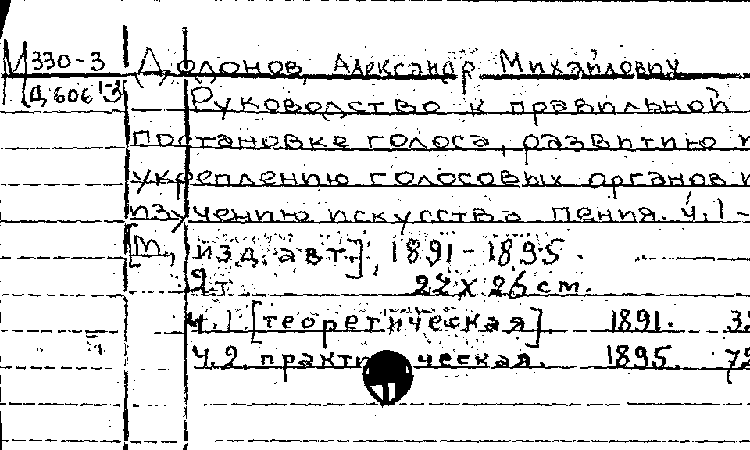 М 330-3 Додонов, Александр Михайлович
Д 606
Руководство к правильной
постановке голоса, развитию и
укреплению голосовых органов и
изучению искусства пения. Ч.1-
[М., изд. авт.], 1891-1895.
2 т. 22 x 26 см.
Ч.1 [теоретическая]. 1891.
Ч.2. практическая. 1895.